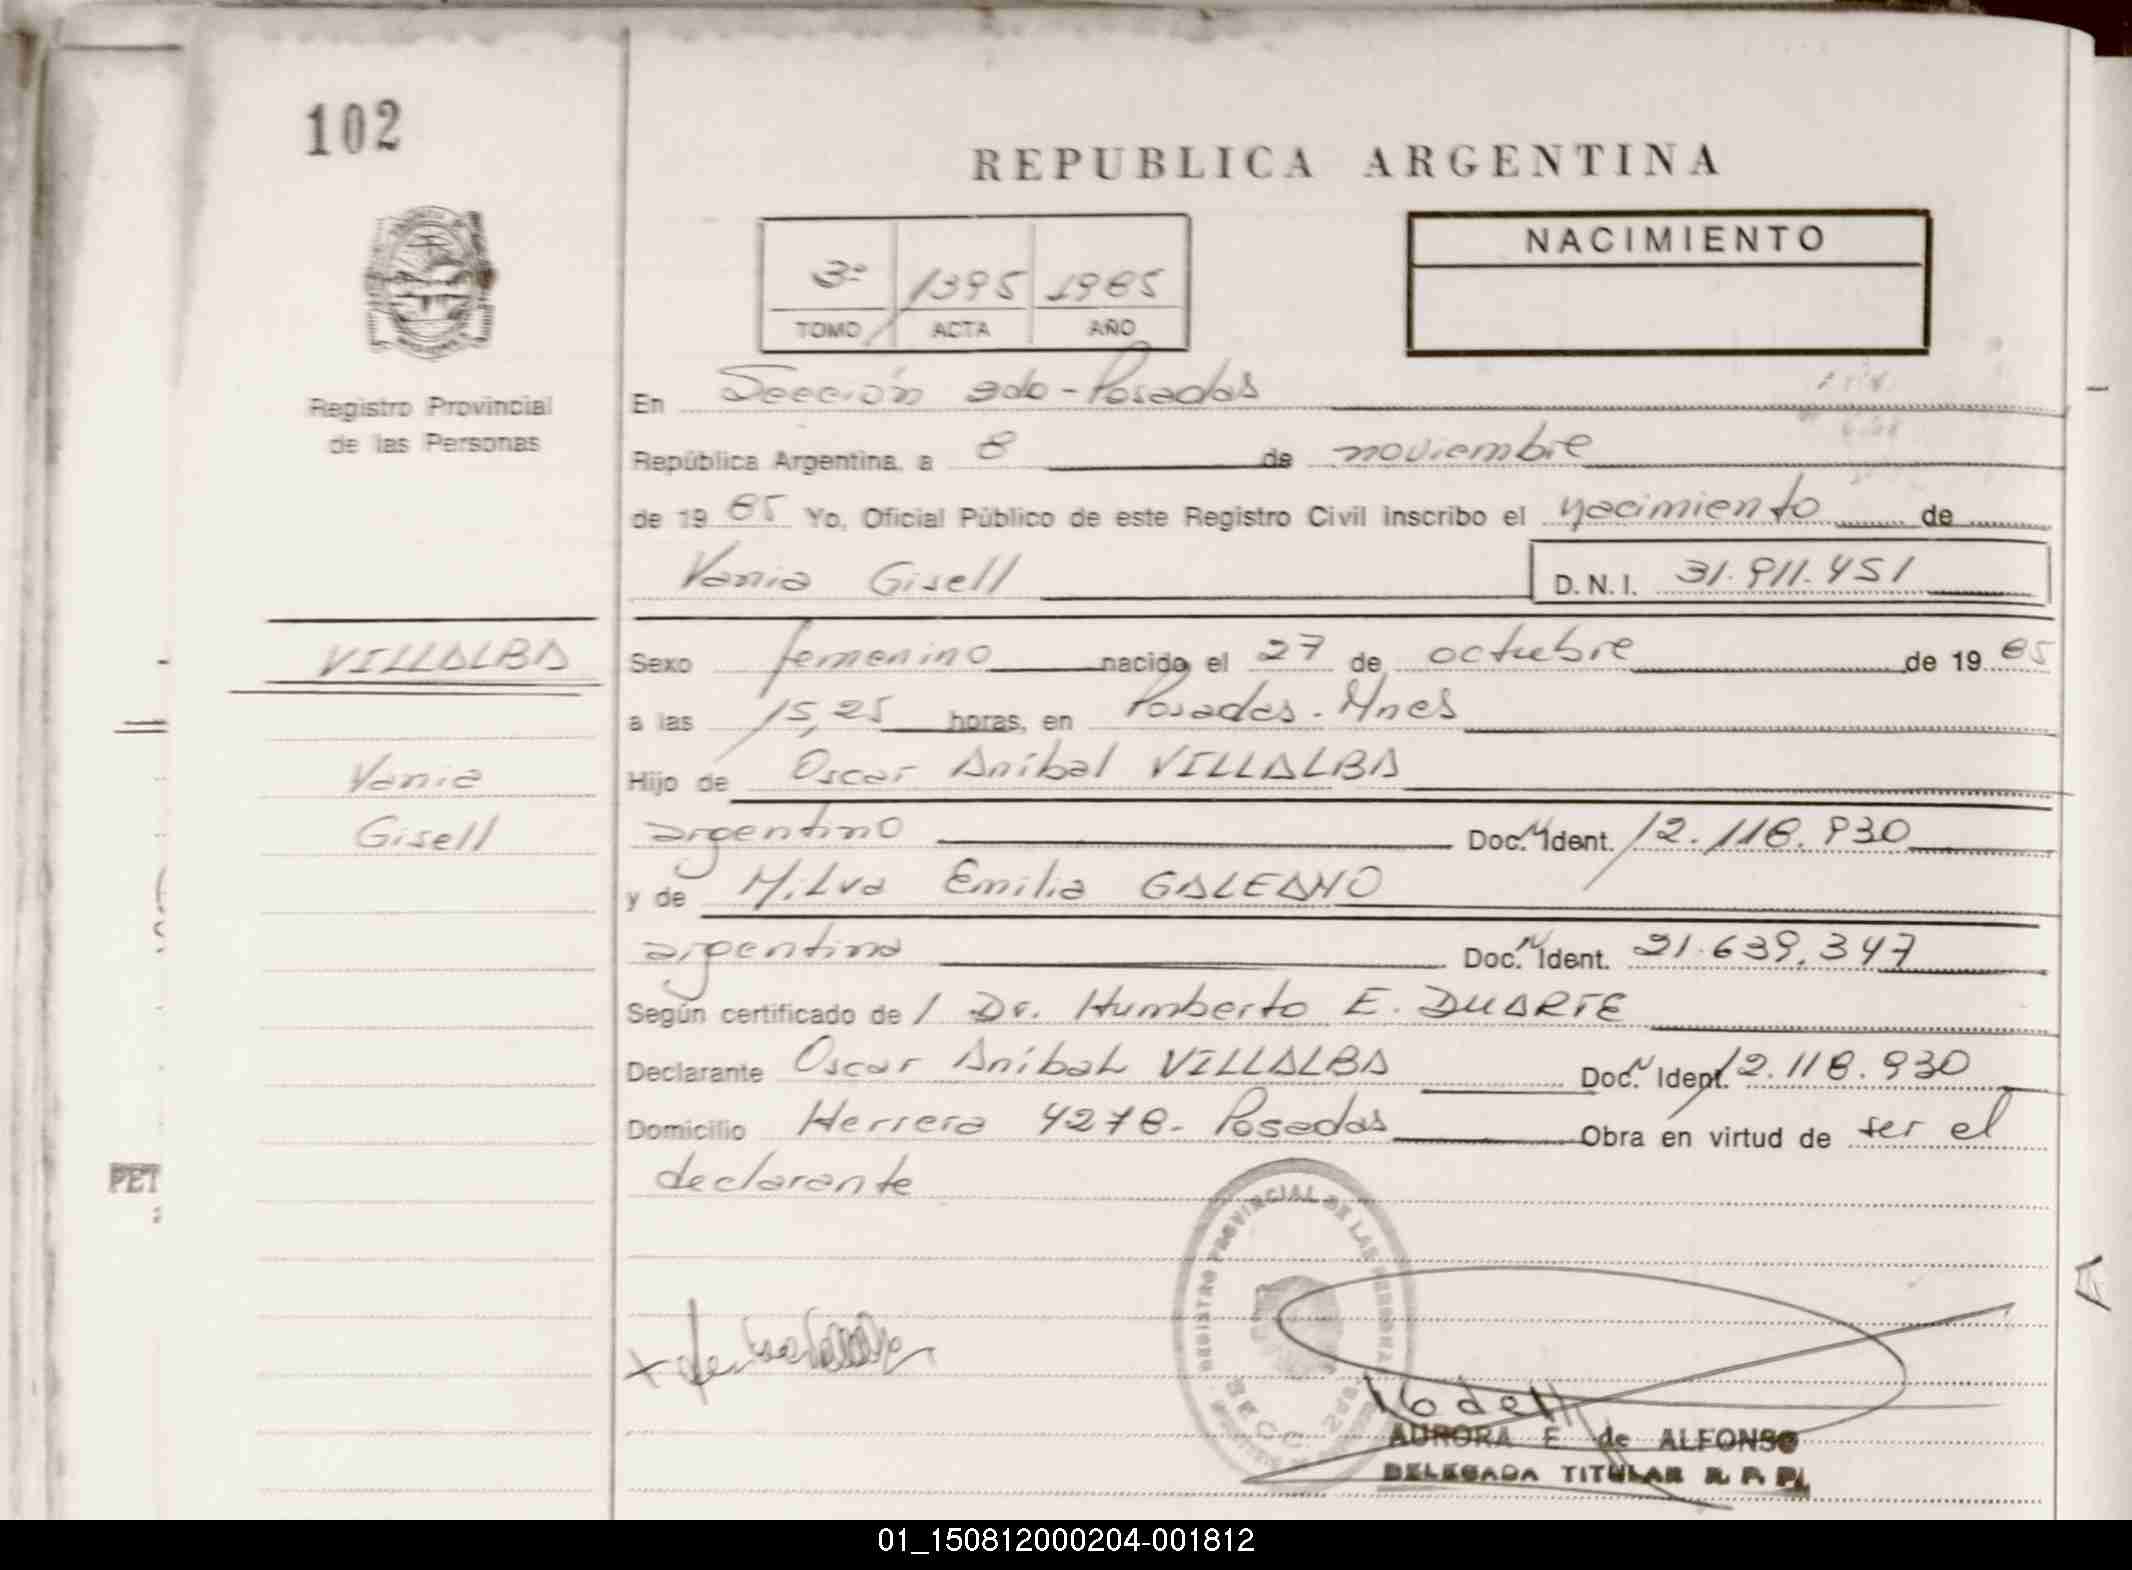 102
REPUBLICA ARGENTINA
3º 1395 1985
TOMO ACTA AÑO
NACIMIENTO
Registro Provincial
de las Personas
En Sección 2da - Posadas
República Argentina, a 8 de noviembre
de 19 85 Yo, Oficial Público de este Registro Civil inscribo el nacimiento de
Vania Gisell D.N.I. 31.911.451
VILLALBA
Vania
Gisell
Sexo femenino nacido el 27 de octubre de 19 85
a las 15,25 horas, en Posadas. Mnes
Hijo de Oscar Aníbal VILLALBA
argentino Doc. Ident. 12.118.930
y de Milva Emilia GALEANO
argentina Doc. Ident. 21.639.347
Según certificado de Dr. Humberto E. DUARTE
Declarante Oscar Aníbal VILLALBA Doc. Ident. 12.118.930
Domicilio Herrera 4278 - Posadas Obra en virtud de ser el
declarante
PET
REGISTRO PROVINCIAL DE LAS PERSONAS
SECC. 2da.
AURORA E. de ALFONSO
DELEGADA TITULAR R. P. P.
01_150812000204-001812